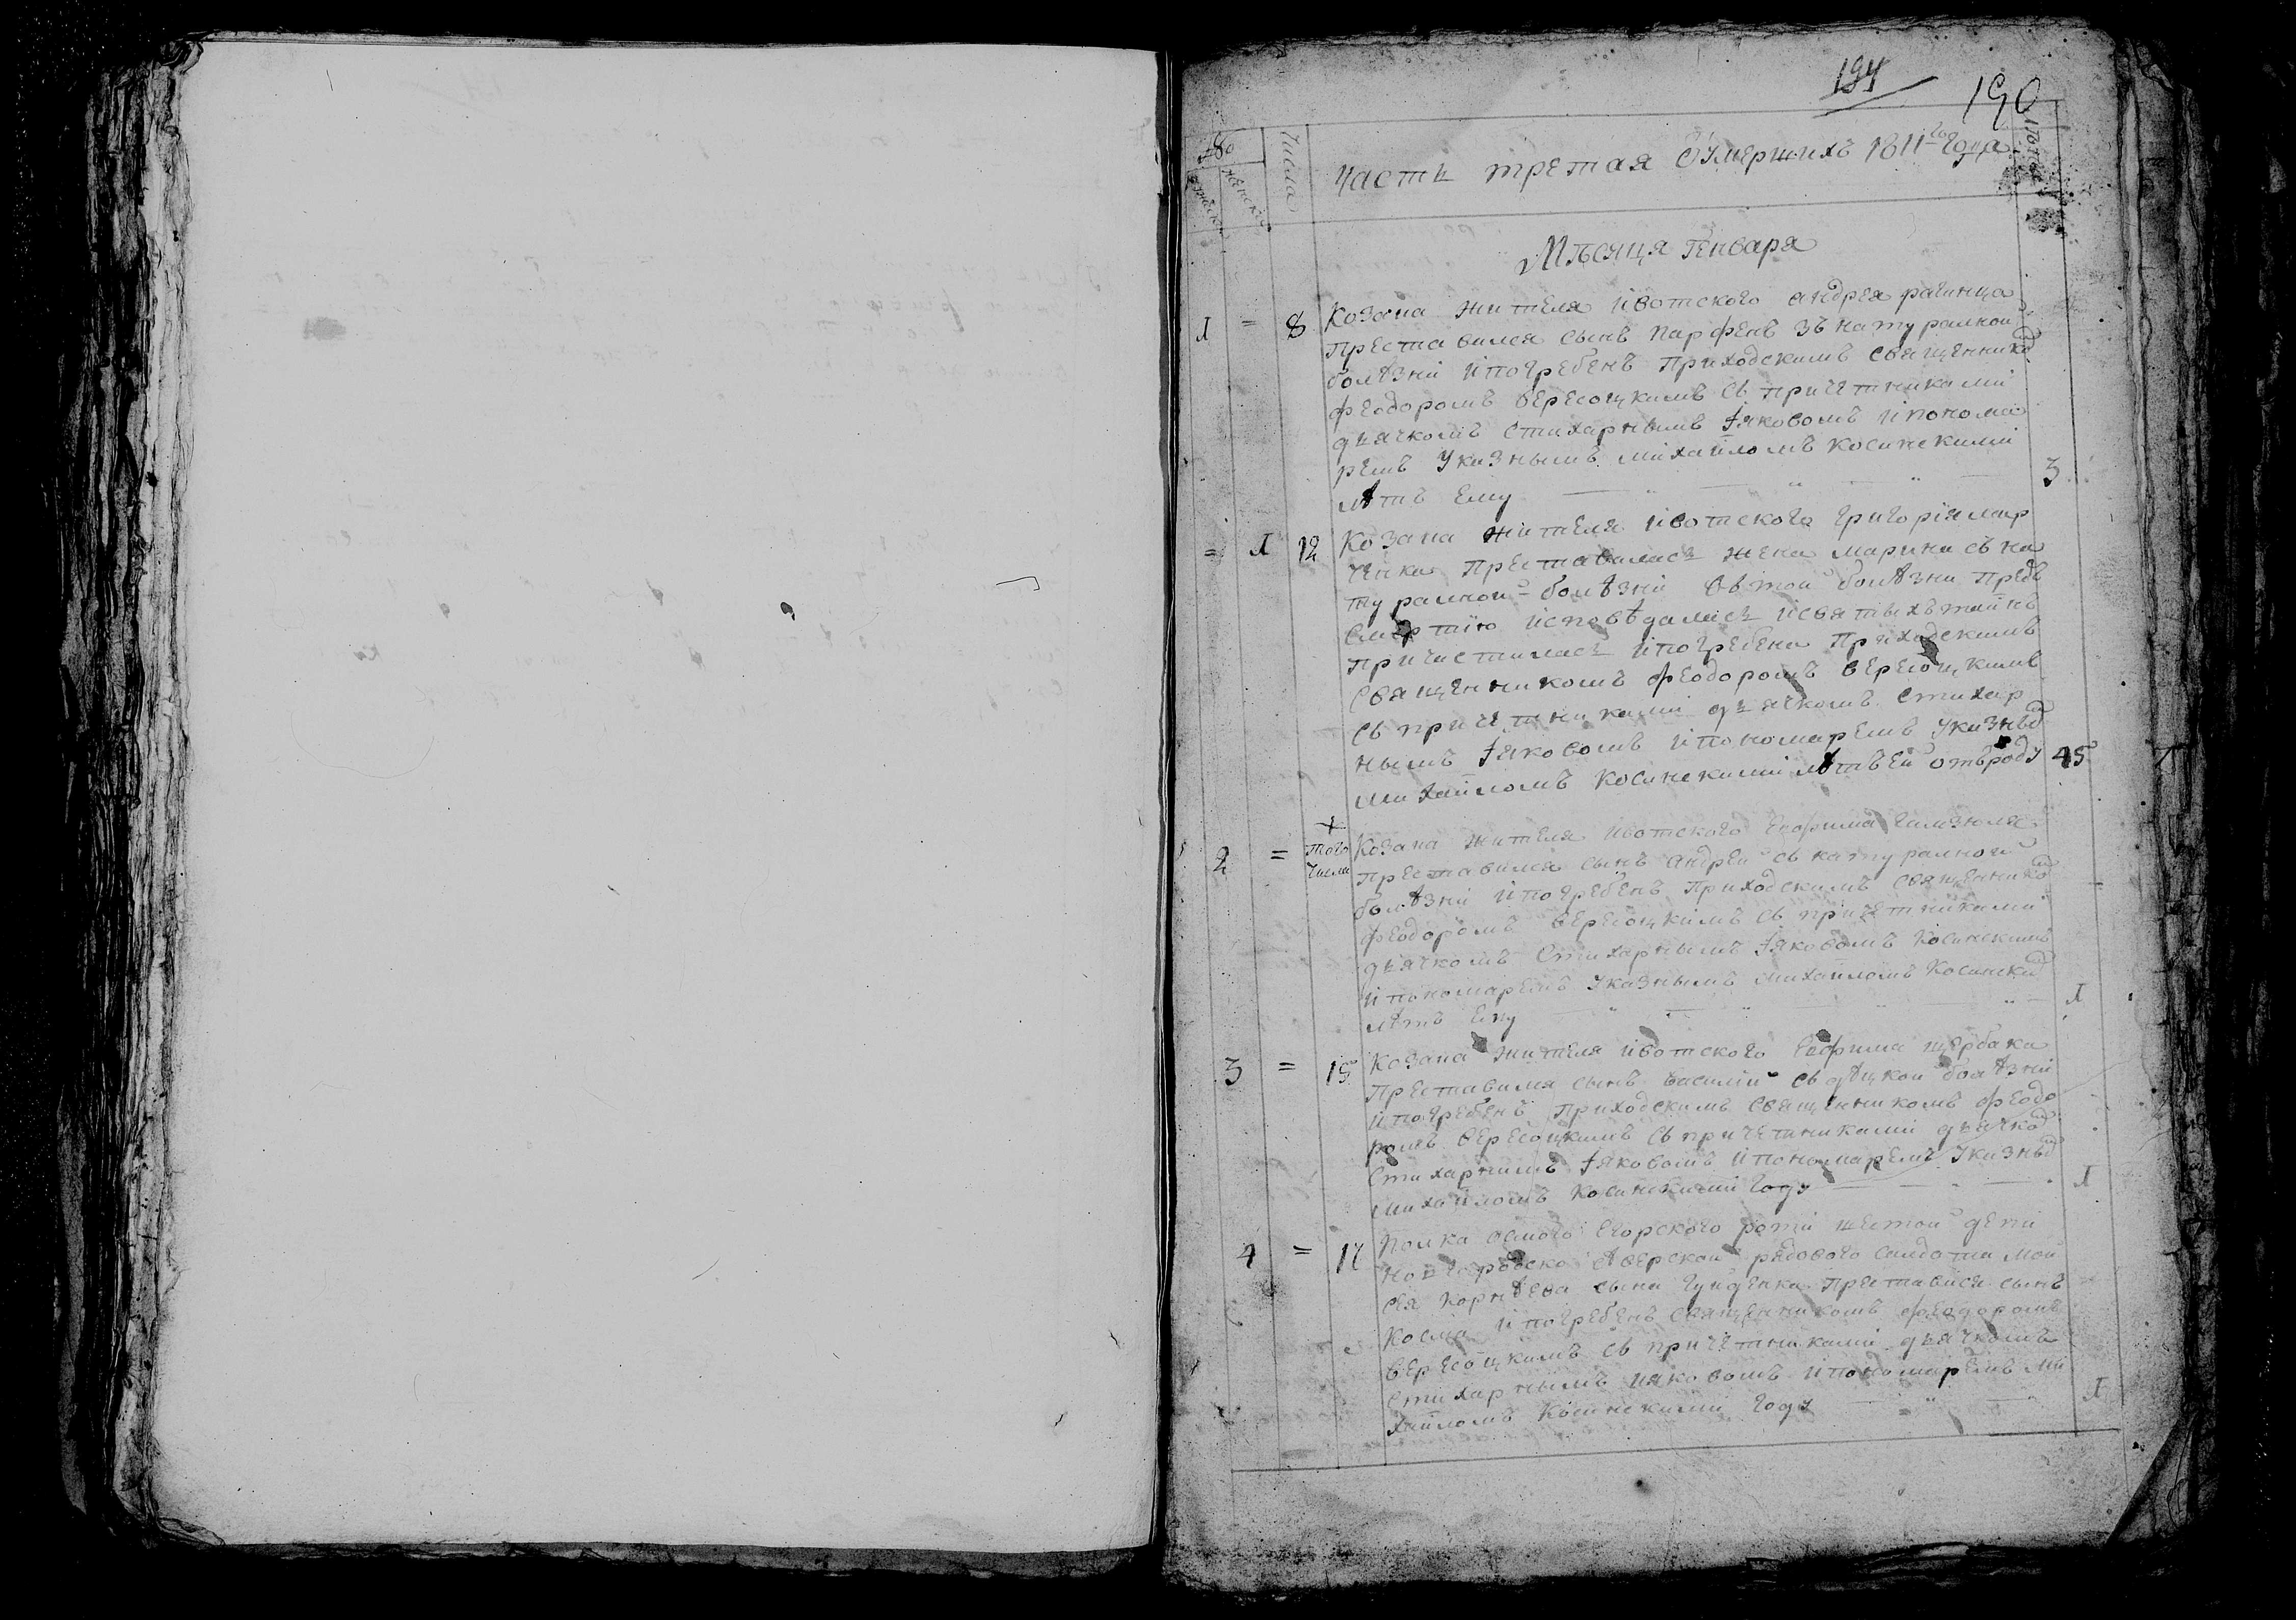 194
190
Часть третая Оумершихъ 1811 го года
Числа
Мѣсяца Генваря
1 = 8 Козака жителя ивотского андрея рагинца
преставился сынъ парфенъ зъ натуралной
болѣзни и погребенъ приходскимъ священнико
феодоромъ вересоцкимъ съ причетниками
дьячкомъ стихарнымъ Іяковомъ и понома
ремъ указнымъ михайломъ косинскими
лѣтъ ему 3
= 1 12 Козака жителя ивотского григорія мар
ченка преставиласъ жена марина съ на
туралной болѣзни въ той болѣзни предъ
смертію исповѣдалась и святыхъ тайнъ
причистилась и погребена приходскимъ
священникомъ феодоромъ вересоцкимъ
съ причетниками дьячкомъ стихар
нымъ Іяковомъ и пономаремъ указны
михайломъ косинскими лѣтъ ей отъ роду 45
2 = того числа Козака жителя ивотского Евфима
преставился сынъ андрей съ натуралной
болѣзни и погребенъ приходскимъ священнико
феодоромъ вересоцкимъ съ причетниками
дьячкомъ стихарнымъ Іяковомъ косинскимъ
и пономаремъ указнымъ михайломъ косински
лѣтъ ему 1
3 = 15 Козака жителя ивотского Евфима щербака
преставился сынъ василий съ дѣцкой болѣзни
и погребенъ приходскимъ священникомъ феодо
ромъ вересоцкимъ съ причетниками дьячко
стихарнимъ Іяковомъ и пономаремъ указны
михайломъ косинскими году 1
4 = 17 полка осмого Егорского роти шестой
рядового салдата мой
сея корнѣева сына преставися сынъ
косма и погребенъ священникомъ феодоромъ
вересоцкимъ съ причетниками дьячкомъ
стихарнымъ ияковомъ и пономаремъ ми
хайломъ косинскими году 1